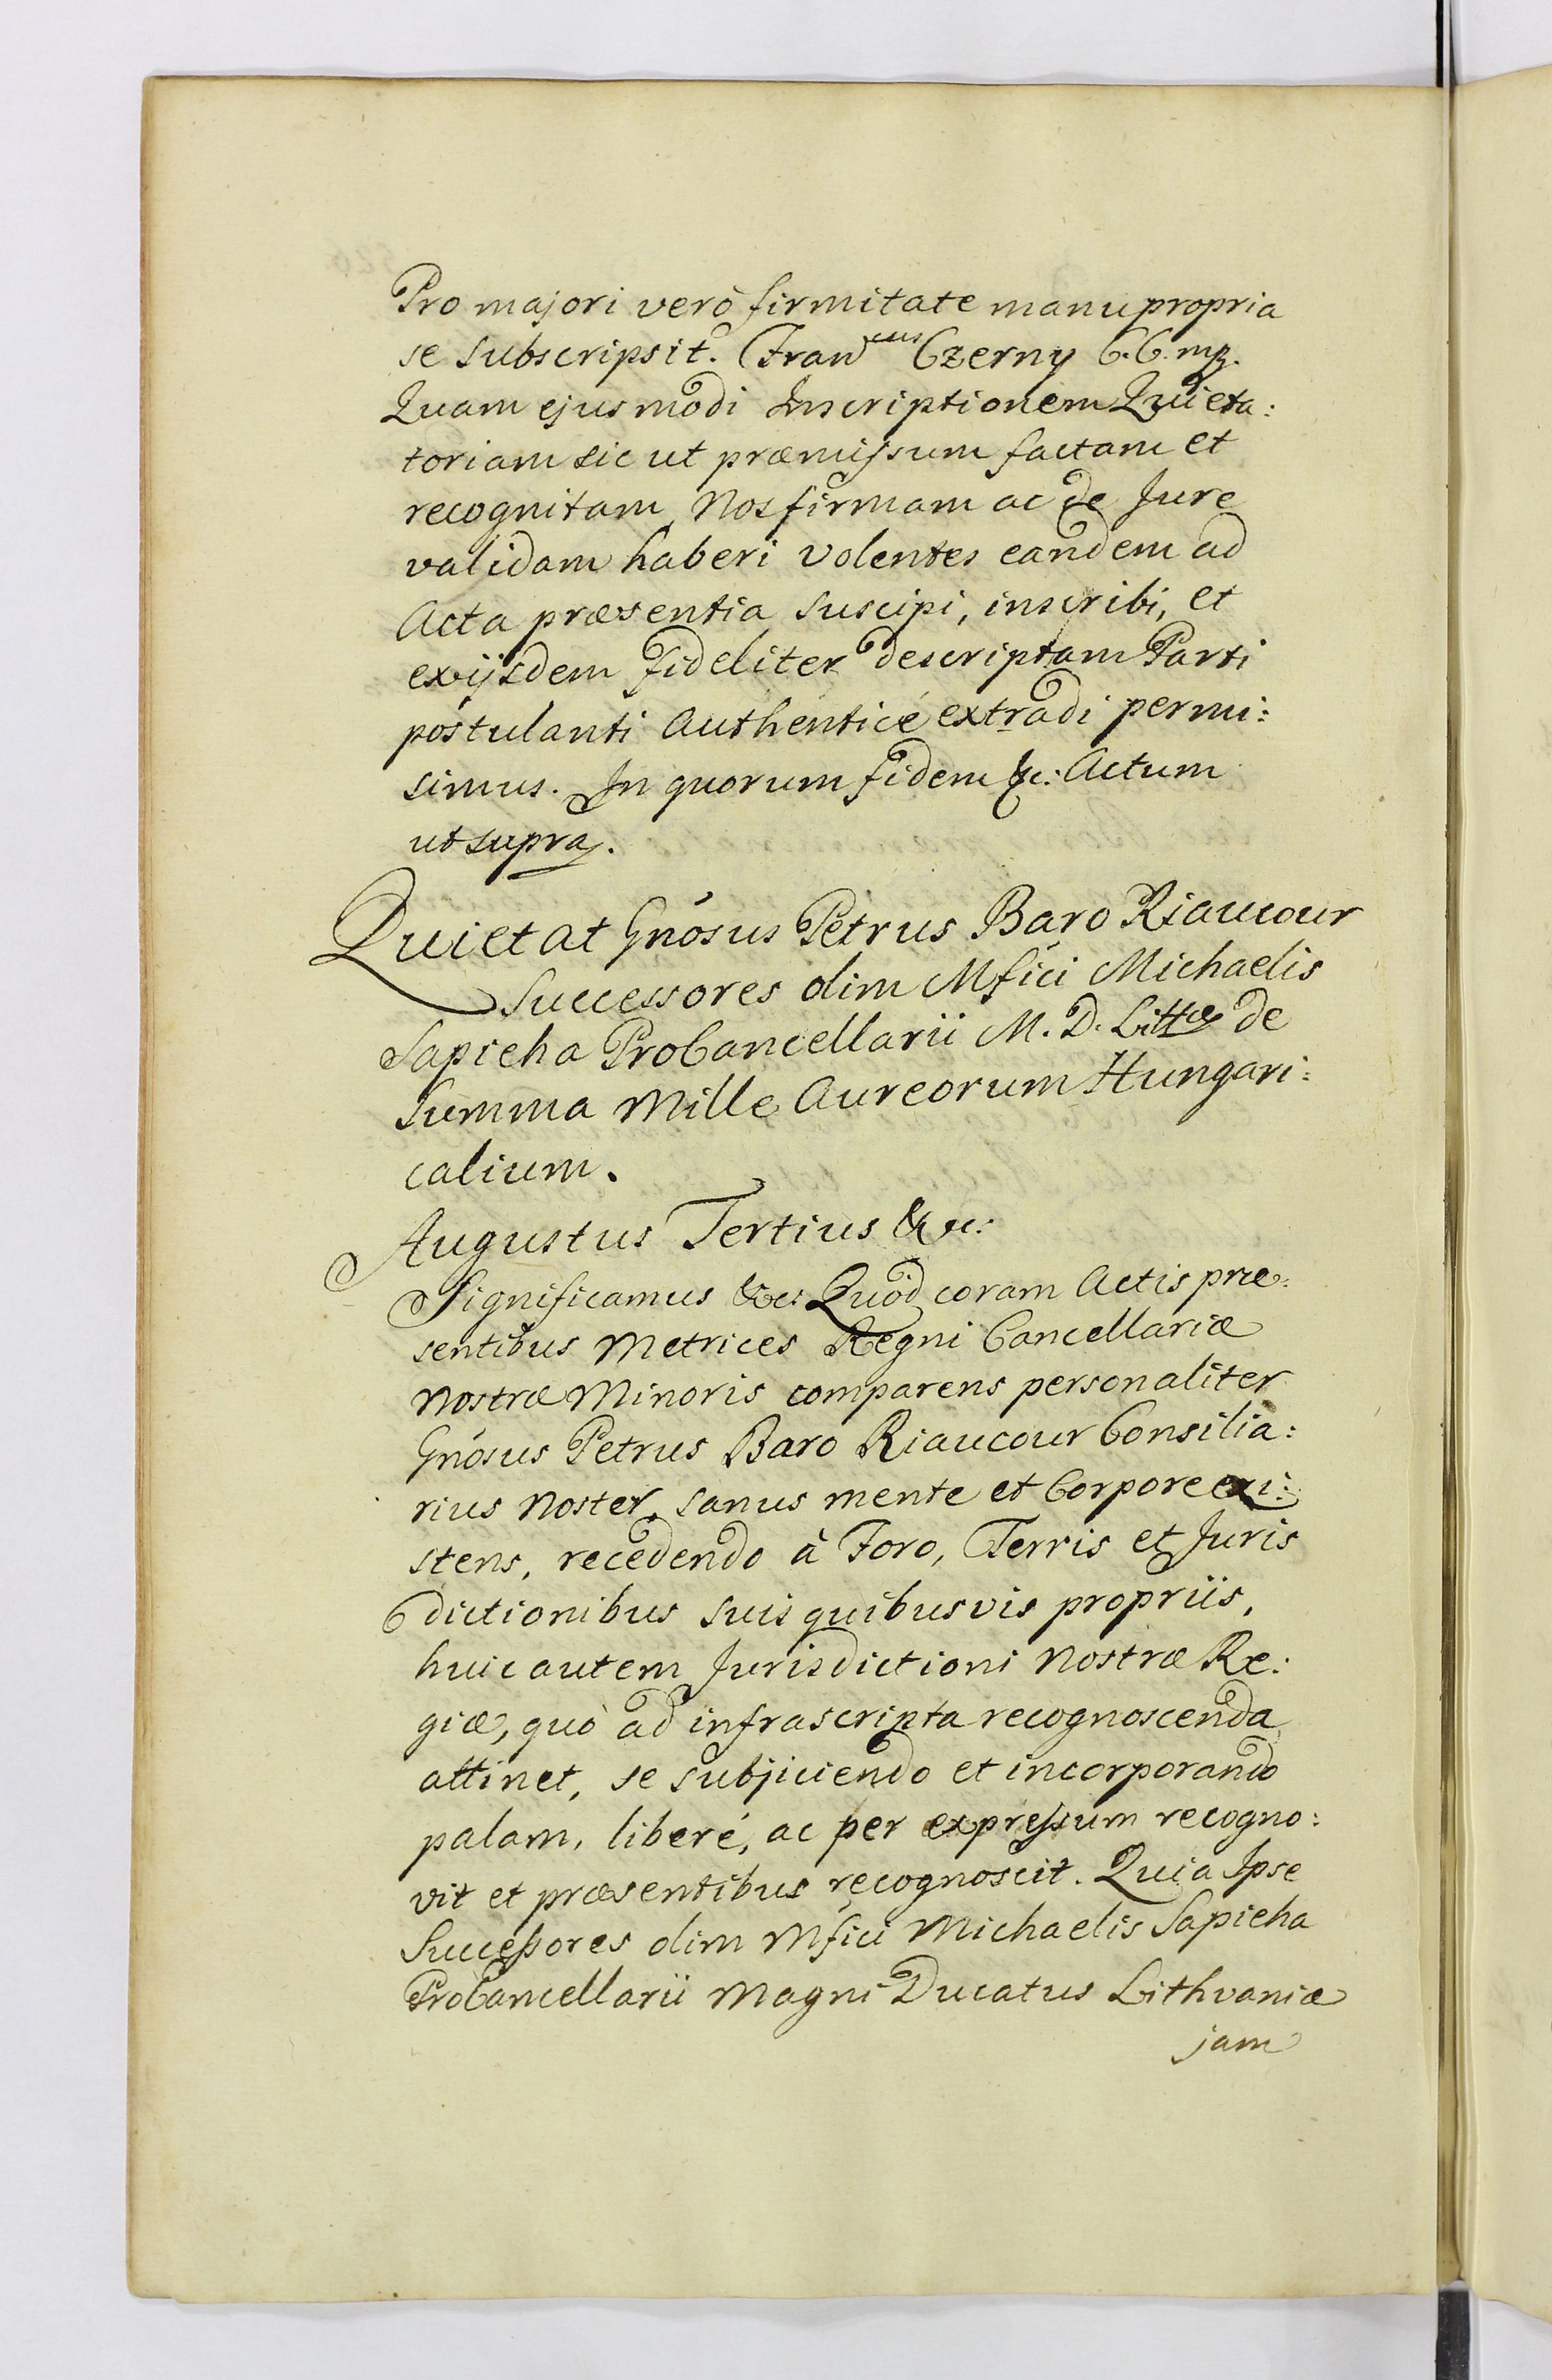 Pro majori verò firmitate manu propria
se subscripsit. Fran^cus Czerny C. C. mp.
Quam ejusmodi Inscriptionem Quieta:
toriam sic ut præmissum factam et
recognitam Nos firmam ac de Jure
validam haberi volentes eandem ad
Acta præsentia suscipi, inscribi, et
ex ijsdem fideliter descriptam Parti
postulanti Authenticé extradi permi:
simus. In quorum fidem &c: Actum
ut supra.
Quietat Gnósus Petrus Baro Riaucour
Successores olim Mfici Michaelis
Sapieha ProCancellarii M. D. Littæ de
Summa Mille Aureorum Hungari:
calium.
Augustus Tertius &c:
Significamus &c: Quòd coram Actis præ:
sentibus Metrices Regni Cancellariæ
Nostræ Minoris comparens personaliter
Gnósus Petrus Baro Riaucour Consilia:
rius Noster, sanus mente et Corpore exi:
stens, recedendo à Foro, Terris et Juris
dictionibus suis quibusvis propriis,
huic autem Jurisdictioni Nostræ Re:
giæ, quò ad infrascripta recognoscenda
attinet, se subjiciendo et incorporando
palam, liberé, ac per expressum recogno:
vit et præsentibus recognoscit. Quia Ipse
Successores olim Mfici Michaelis Sapieha
ProCancellarii Magni Ducatus Lithvaniæ
jam